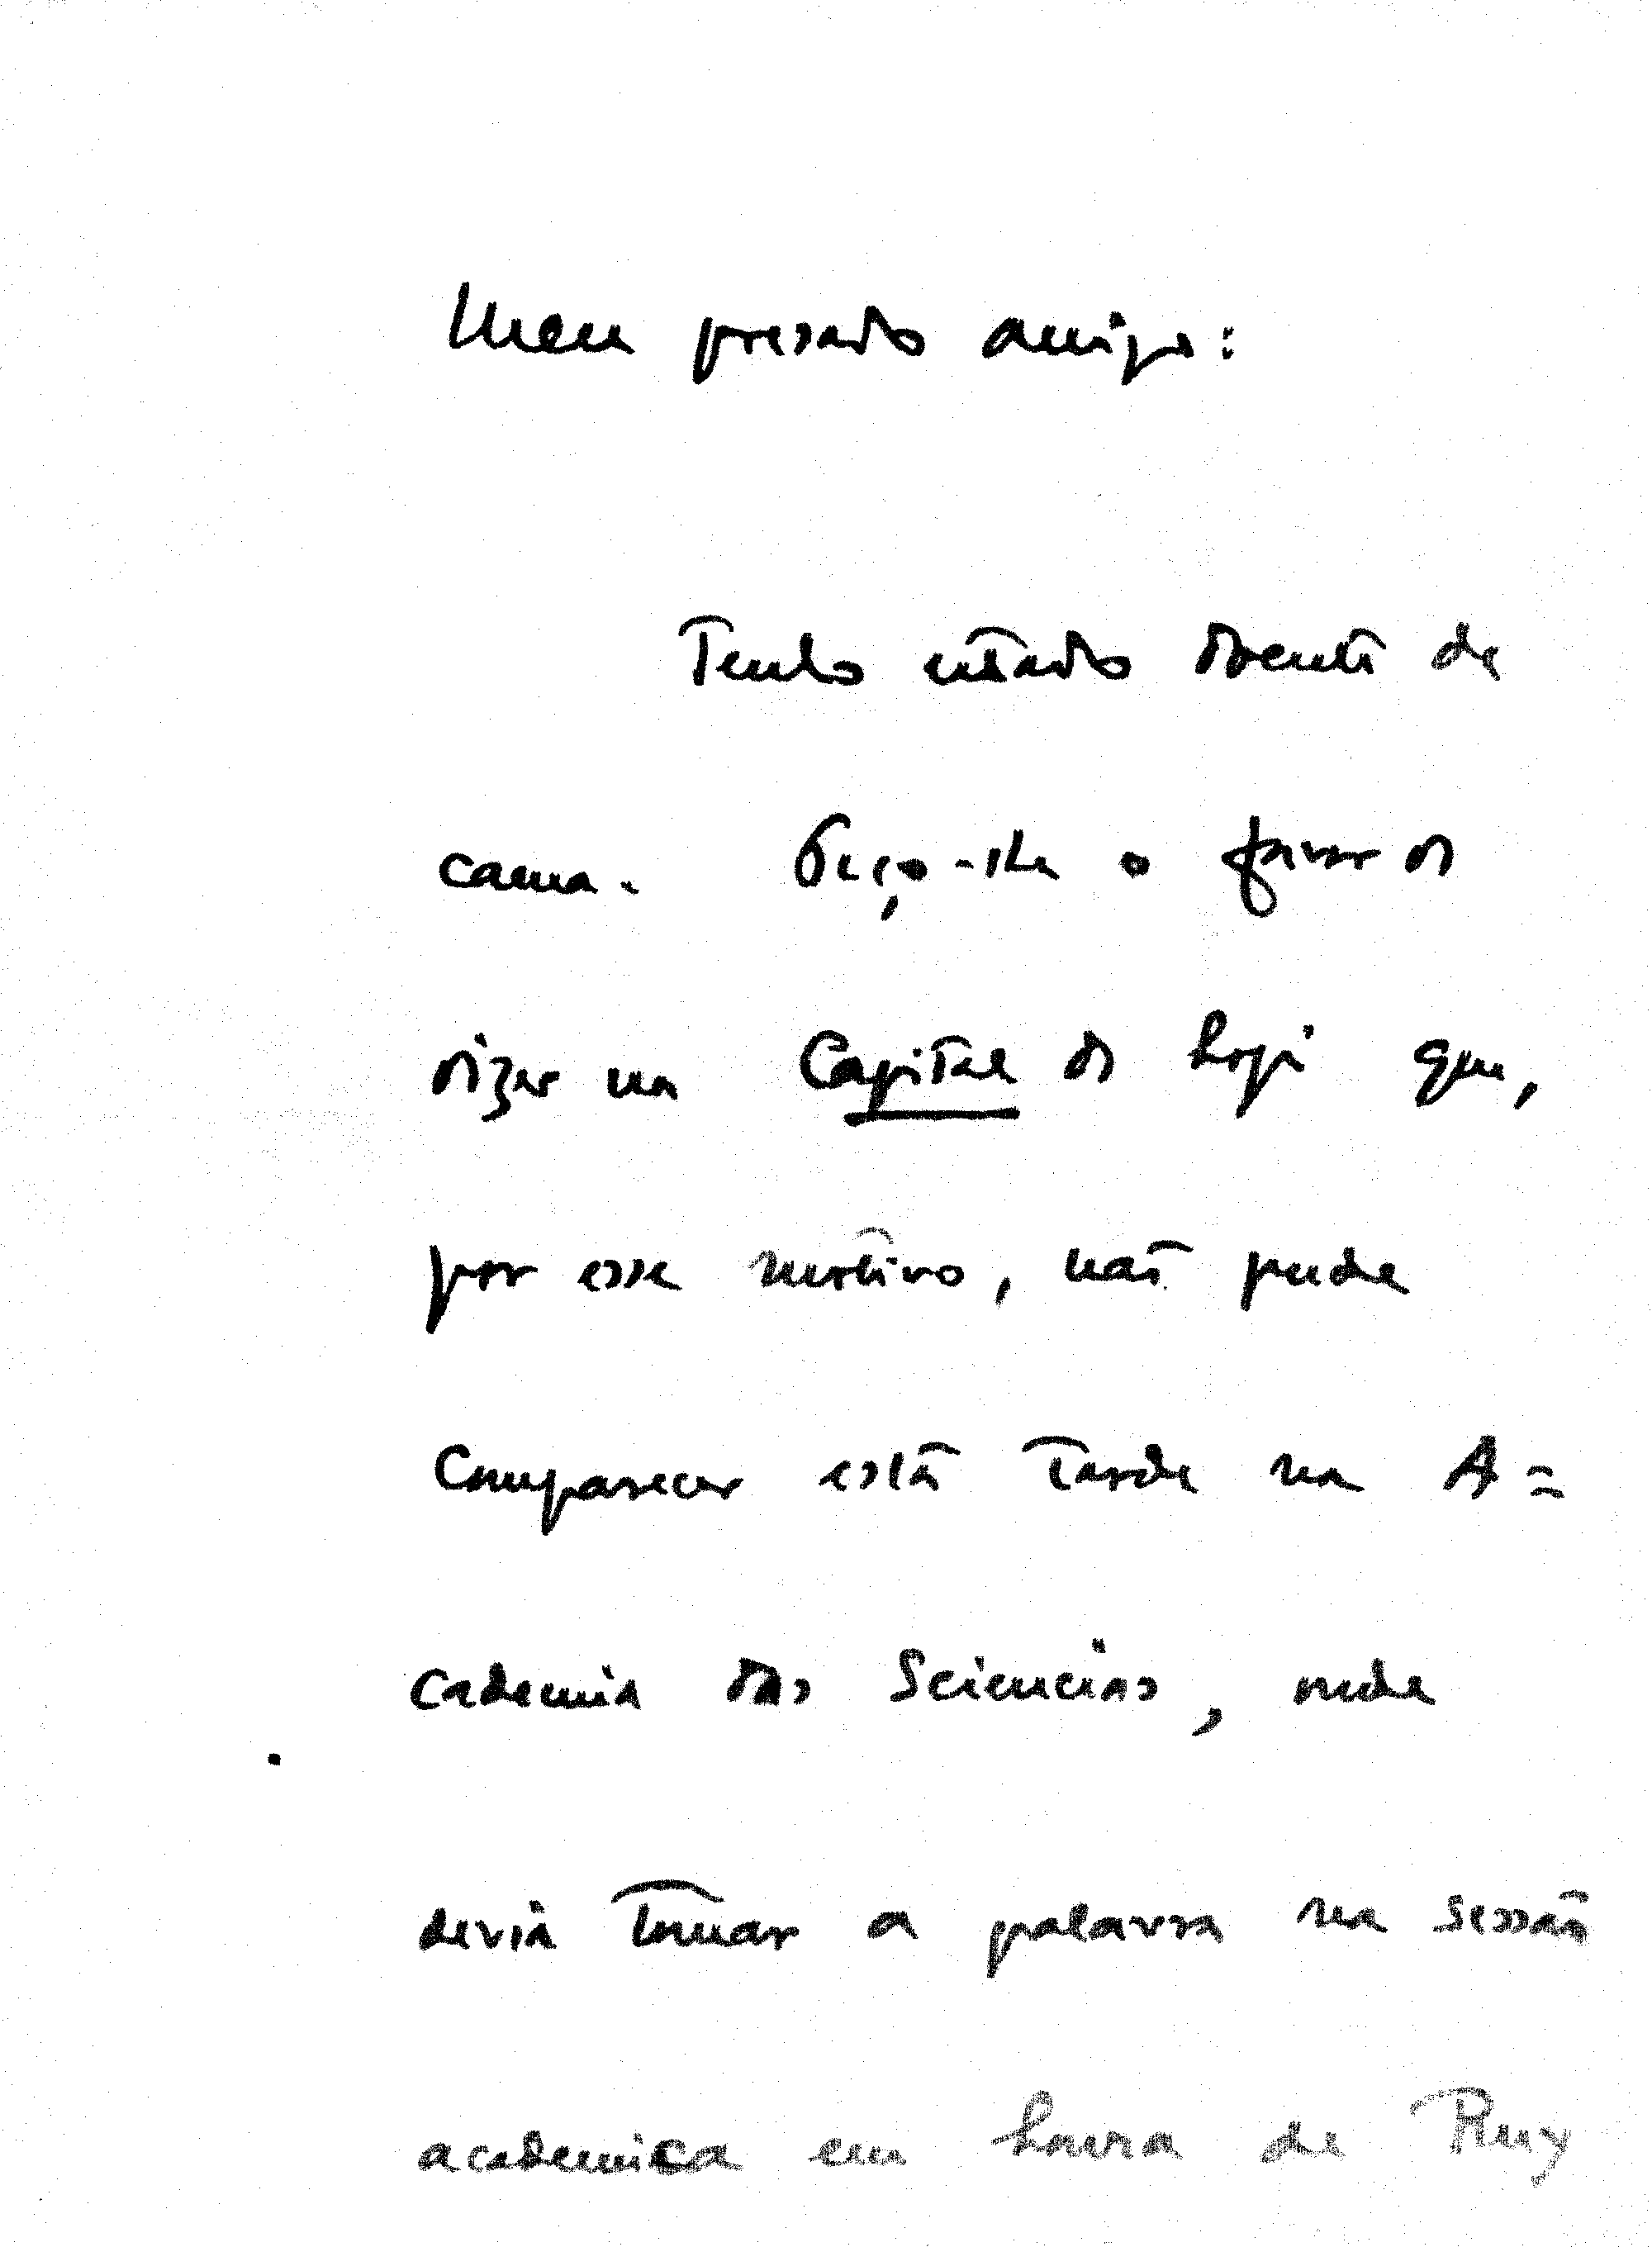 Meu presado amigo:
Tenho estado doente de
cama. Peço-lhe o favor de
dizer na Capital de hoje que,
por esse motivo, não pude
comparecer esta tarde na A=
cademia das Sciencias, onde
devia tomar a palavra na sessão
academica em honra de Ruy